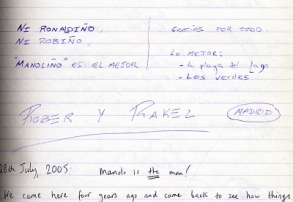 NI RONALDIÑO,
NI ROBIÑO,
"MANOLIÑO" ES EL MEJOR
GRACIAS POR TODO.
LO MEJOR:
- La playa del lago
- Los verdes.
ROBER Y RAKEL
MADRID
28th July, 2005. Manolo is the man!
We came here four years ago and came back to see how things